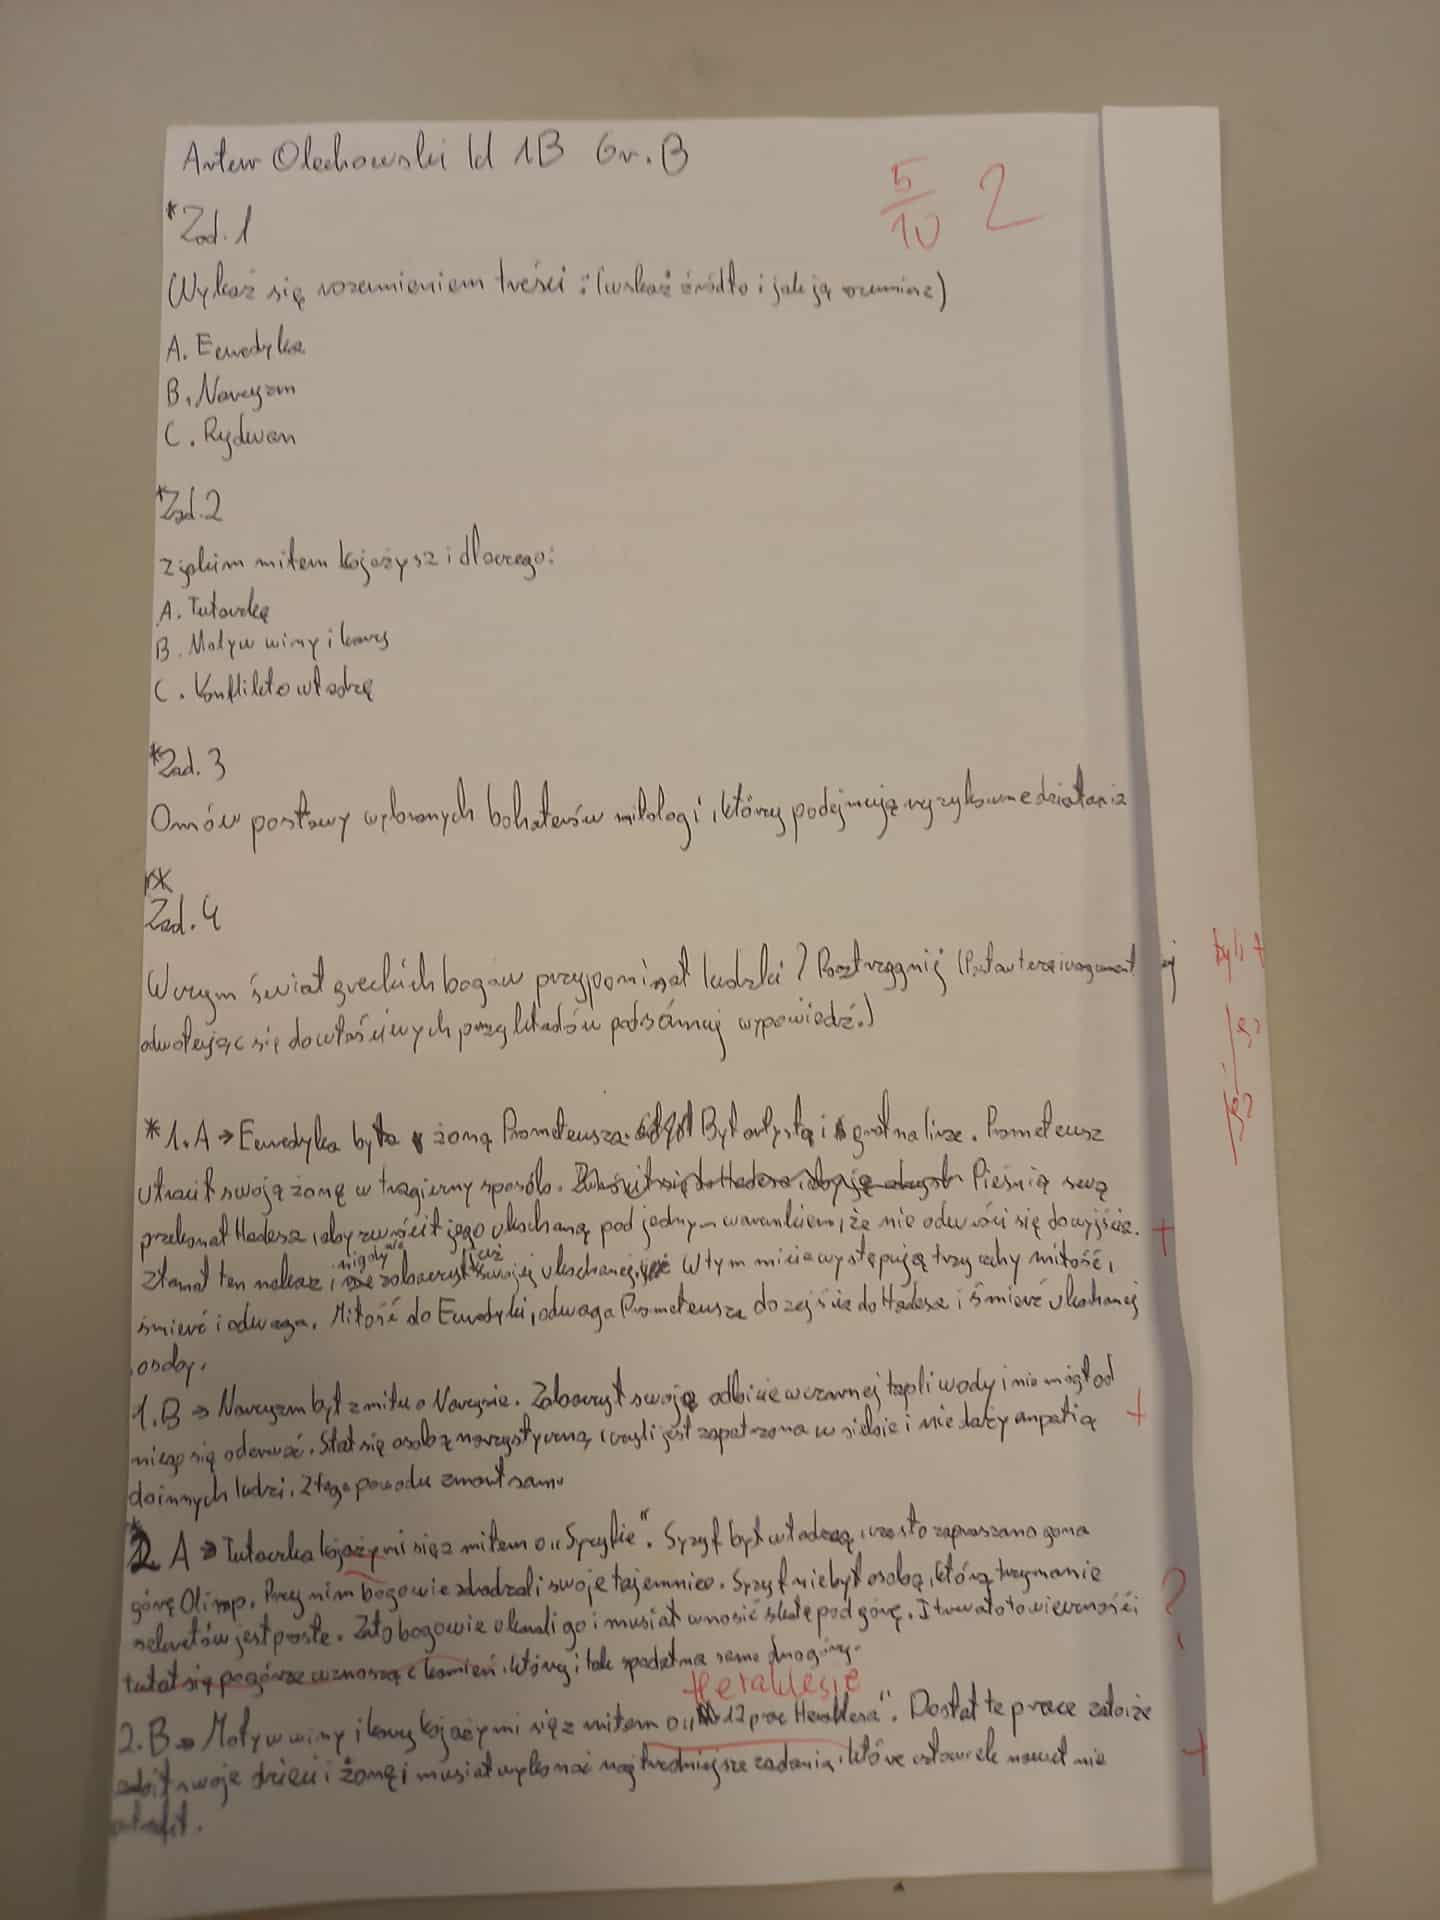 Artur Olechowski kl 1B Gr. B
5/10 2
*Zad. 1
Wykaż się rozumieniem treści : (wskaż źródło i jak ją rozumiesz)
A. Eurydyka
B. Narcyzm
C. Rydwan
*Zad. 2
z jakim mitem kojażysz i dlaczego:
A. Tułaczkę
B. Motyw winy i kary
C. Konflikt o władzę
*Zad. 3
Omów postawy wybranych bohaterów mitologi, którzy podejmują ryzykowne działania
Zad. 4
W czym świat greckich bogów przypominał ludzki? Roztrzygnij (Postaw tezę i
odwołując się do właściwych przykładów podsumuj wypowiedź.)
*1. A → Eurydyka była żoną Prometeusza. Był artystą i grał na lirze. Prometeusz
utracił swoją żonę w tragiczny sposób. Pieśnią swą
przekonał Hadesa, aby zwrócił jego ukochaną pod jednym warunkiem, że nie odwróci się do wyjścia. +
Złamał ten nakaz i nigdy nie zobaczył już swojej ukochanej. W tym micie występują trzy cechy miłość,
śmierć i odwaga. Miłość do Eurydyki, odwaga Prometeusza do zejścia do Hadesa i śmierć ukochanej
osoby.
1. B → Narcyzm był z mitu o Narcyzie. Zobaczył swoję odbicie w czarnej tafli wody i nie mógł od
niego się oderwać. Stał się osobą narcystyczną, czyli jest zapatrzona w siebie i nie daży empatią +
do innych ludzi. Z tego powodu zmarł sam.
2. A → Tułaczka kojaży mi się z mitem o „Syzyfie". Syzyf był władcą, często zapraszano go na
górę Olimp. Przy nim bogowie zdradzali swoje tajemnice. Syzyf nie był osobą, którą trzymanie
sekretów jest proste. Za to bogowie ukarali go i musiał wnosić skałę pod górę. I trwało to wieczności ?
tułał się po górze wznosząc kamień, który i tak spadał na samo dno góry.
Heraklesie
2. B → Motyw winy i kary kojaży mi się z mitem o „12 prac Heraklesa". Dostał te prace za to że
zabił swoje dzieci i żonę i musiał wykonać najtrudniejsze zadania, które człowiek nawet nie +
potrafił.